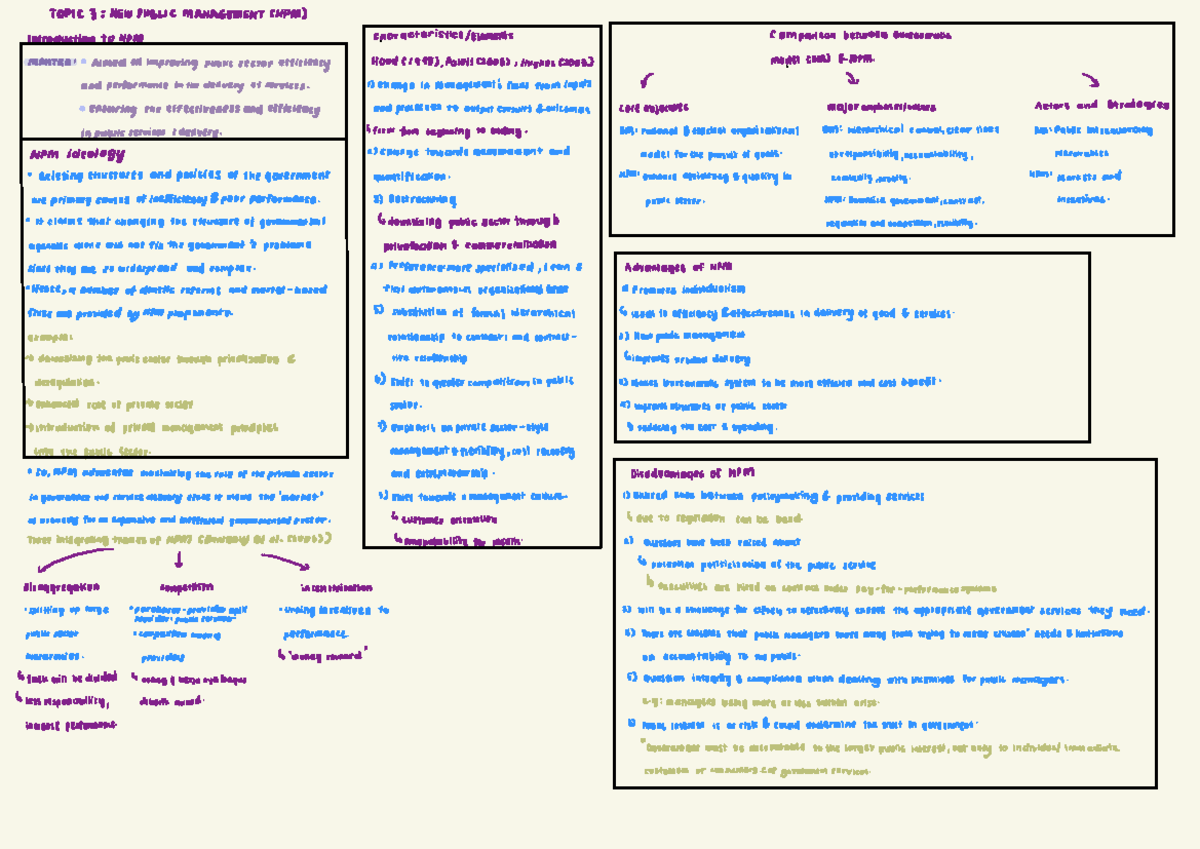 TOPIC 3: NEW PUBLIC MANAGEMENT (NPM)
Introduction to NPM
MANTRA: • Aimed at improving public sector efficiency
and performance in the delivery of services.
• Ensuring the effectiveness and efficiency
in public services delivery.
NPM ideology
• Existing structures and policies of the government
are primary causes of inefficiency & poor performance.
• It claims that changing the structure of government
agencies alone will not fix the government's problems
since they are so widespread and complex.
• Hence, a number of drastic reforms and market-based
fixes are provided by NPM proponents.
example:
→ downsizing the public sector through privatization &
deregulation.
→ enhanced role of private sector
→ introduction of private management principles
into the public sector.
• So, NPM advocates maximizing the role of the private sector
in governance and service delivery since it views the 'market'
as
Three integrating themes of NPM (Dunleavy et al. (2005))
disaggregation
• splitting up large
public sector
hierarchies.
↳ task will be divided
↳ less responsibility,
increase performance.
competition
• purchaser-provider split
• competition among
providers
incentivization
• linking incentives to
performance.
↳ "money reward"
Characteristics/Elements
Hood (1995), Pollitt (2003), Hughes (2003)
1) change in management's focus from inputs
and processes to output results & outcomes
↳ from beginning to ending.
2) change towards measurement and
quantification.
3) Destructuring
↳ downsizing public sector through
privatization & commercialization
4) Preference more specialized, lean &
flat autonomous organizational form
5) substitution of formal hierarchical
relationship to contract and contract-
like relationship
6) Shift to greater competition in public
sector.
7) Emphasis on private sector-style
management & flexibility, cost recovery
and entrepreneurship.
8) Move towards a management culture-
↳ customer orientation
↳ accountability for results.
Comparison between Bureaucratic
model (BM) & NPM.
Core objectives
BM: rational & efficient organizational
model for the pursuit of goals.
NPM: enhance efficiency & quality in
public sector.
major emphases/values
BM: hierarchical control, clear lines
of responsibility, accountability,
neutrality,
NPM: business government, contract,
regulation and competition, flexibility.
Actors and Strategies
BM: Public bureaucracy
NPM: Markets and
incentives.
Advantages of NPM
1) Promotes individualism
↳ leads to efficiency & effectiveness in delivery of good & services.
2) New public management
↳ improves service delivery
3) Makes bureaucratic system to be more efficient and cost benefit.
4) improve structures of public sector
↳ reducing the cost & spending.
Disadvantages of NPM
1) Blurred lines between policymaking & providing services
↳ due to separation can be hard.
2) Questions have been raised about
↳ potential politicization of the public service
↳ executives are hired on contract under pay-for-performance systems
3) Will be a challenge for citizen to effectively choose the appropriate government services they need.
4) There are worries that public managers move away from trying to meet citizens' needs & limitations
on accountability to the public.
5) Question integrity & compliance when dealing with incentives for public managers.
e.g: managers being more or less faithful arise.
6) Public interest is at risk & could undermine the trust in government.
"Government must be accountable to the larger public interest, not only to individual immediate
customers or consumers of government services.